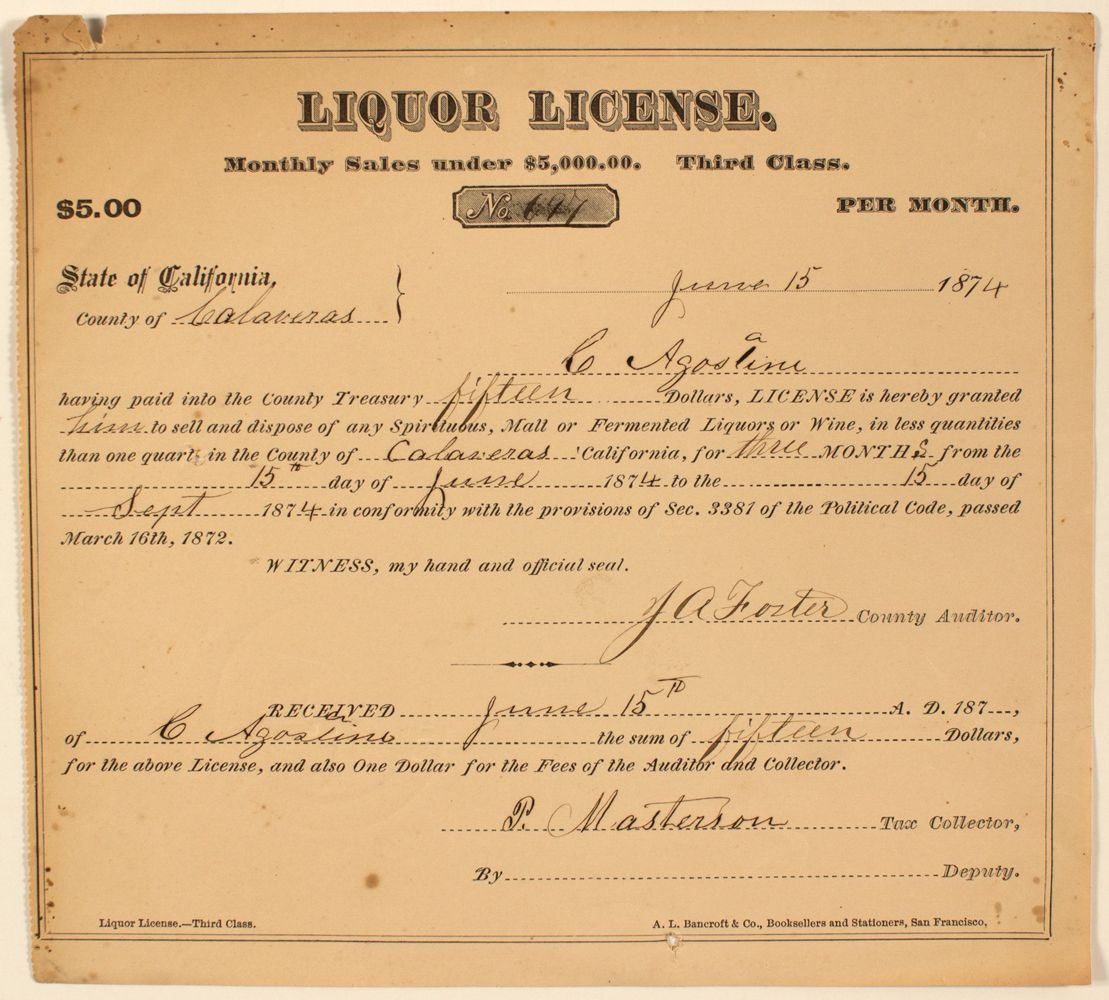 LIQUOR LICENSE.
Monthly Sales under $5,000.00. Third Class.
$5.00 No. 697 PER MONTH.
State of California,
June 15 1874
County of Calaveras
C Agostini
a
having paid into the County Treasury fifteen Dollars, LICENSE is hereby granted
him to sell and dispose of any Spirituous, Malt or Fermented Liquors or Wine, in less quantities
than one quart, in the County of Calaveras California, for three MONTHS from the
15th day of June 1874 to the 15 day of
Sept 1874 in conformity with the provisions of Sec. 3381 of the Political Code, passed
March 16th, 1872.
WITNESS, my hand and official seal.
J A Foster County Auditor.
RECEIVED June 15th A. D. 187
of C Agostini the sum of fifteen Dollars,
for the above License, and also One Dollar for the Fees of the Auditor and Collector.
P. Masterson Tax Collector,
By Deputy.
Liquor License.—Third Class. A. L. Bancroft & Co., Booksellers and Stationers, San Francisco.